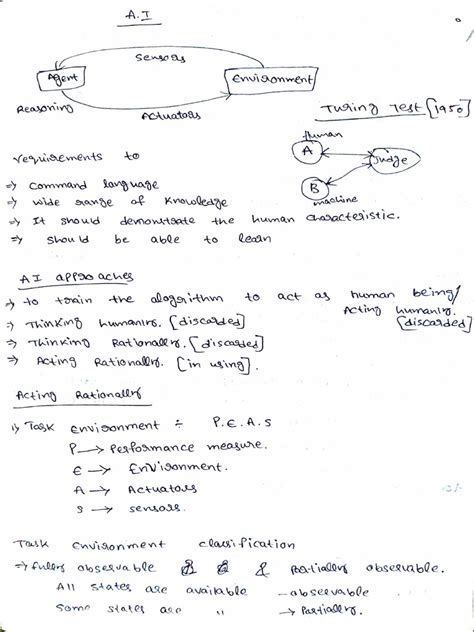 A.I
Sensors
Agent Environment
Reasoning Actuators
Turing Test [1950]
human
A Judge
B
machine
requirements to
⇒ Command language
⇒ wide range of knowledge
⇒ It should demonstrate the human characteristic.
⇒ should be able to learn
AI approaches
⇒ to train the alogrithm to act as human being/
Acting humanly.
[discarded]
⇒ Thinking humanly. [discarded]
⇒ Thinking Rationally. [discarded]
⇒ Acting Rationally. [in using].
Acting Rationally
1) Task Environment ÷ P.E.A.S
P → Performance measure.
E → Environment.
A → Actuators
S → sensors.
Task environment classification
⇒ fully observable & Partially observable.
All states are available - observable
Some states are " → Partially.